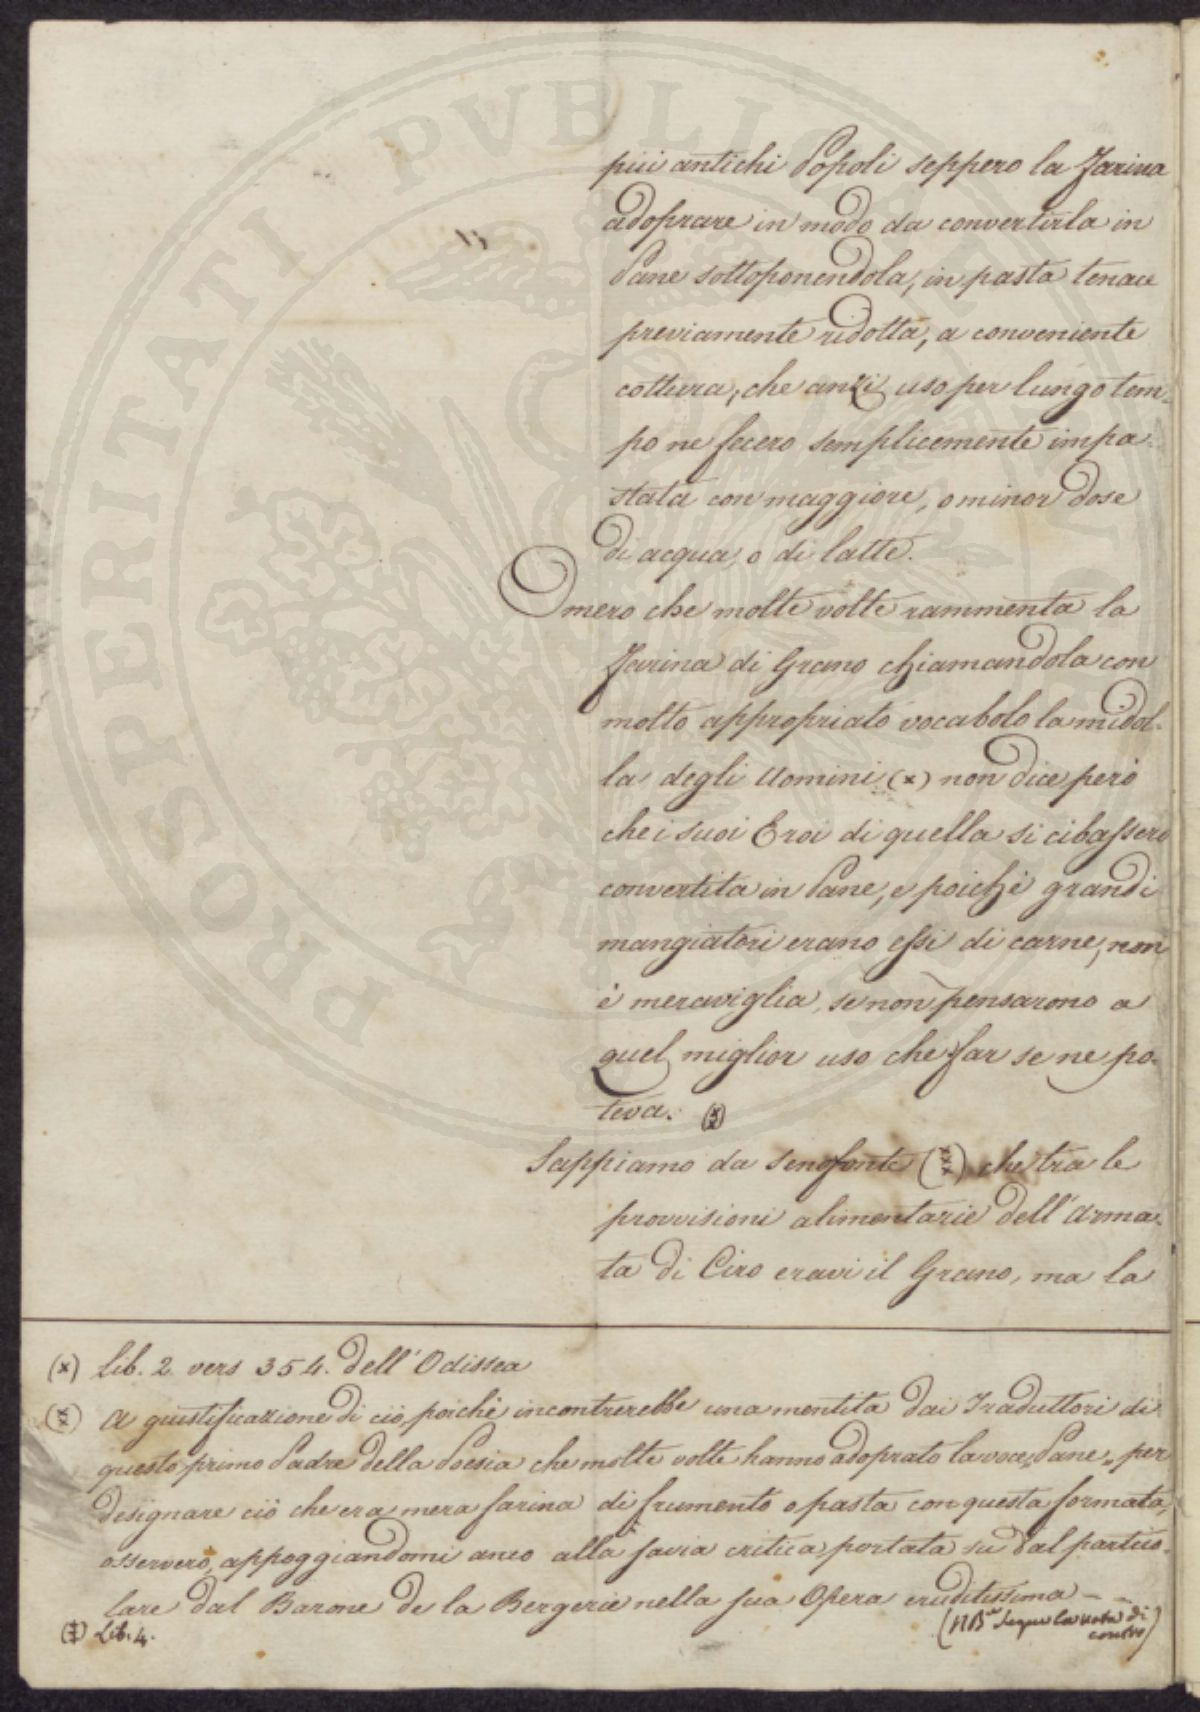 più antichi Popoli seppero la Farina
adoprare in modo da convertirla in
Pane sottoponendola, in pasta tenace
previamente ridotta, a conveniente
cottura, che anzi uso per lungo tem-
po ne fecero semplicemente impa-
stata con maggiore, o minor dose
di acqua, o di latte.
Omero che molte volte rammenta la
Farina di Grano chiamandola con
molto appropriato vocabolo la midol-
la degli Uomini (x) non dice però
che i suoi Eroi di quella si cibassero
convertita in Pane, e poichè grandi
mangiatori erano essi di carne, non
è meraviglia, se non pensarono a
quel miglior uso che far se ne po-
teva. (xx)
Sappiamo da Senofonte (xxx) che tra le
provvisioni alimentarie dell'Arma-
ta di Ciro eravi il Grano, ma la
(x) Lib. 2 vers 354. dell'Odissea
(xx) A giustificazione di ciò, poichè incontrerebbe una mentita dai Traduttori di
questo primo Padre della Poesia che molte volte hanno adoprato la voce "Pane" per
designare ciò che era mera farina di frumento o pasta con questa formata,
osserverò, appoggiandomi anco alla savia critica portata su dal partico-
lare dal Barone de la Bergerie nella sua Opera eruditissima —
(NB segue la nota di
contro)
(xxx) Lib. 4.
PROSPERITATI PVBLICAE